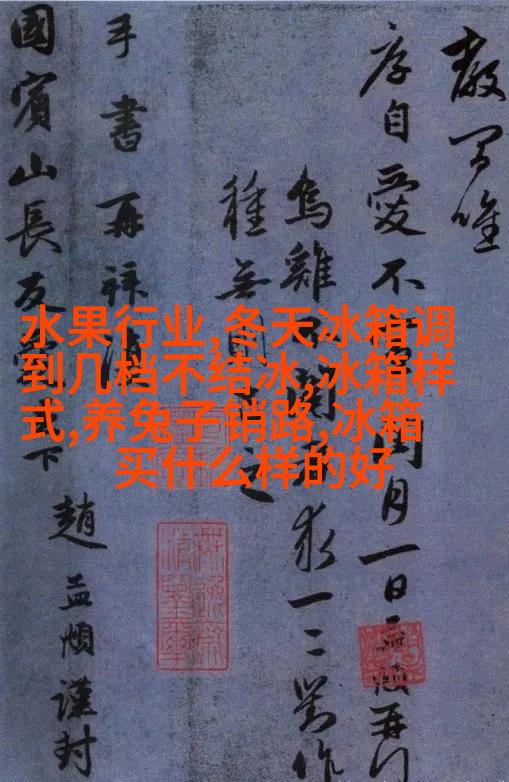 水果行业,冬天冰箱调
到几档不结冰,冰箱样
式,养兔子销路,冰箱
买什么样的好
自愛不
月一日孟頫再
烏雞
求一二對作
種無
之
手書再拜
國賓山長友
下
趙孟頫謹封